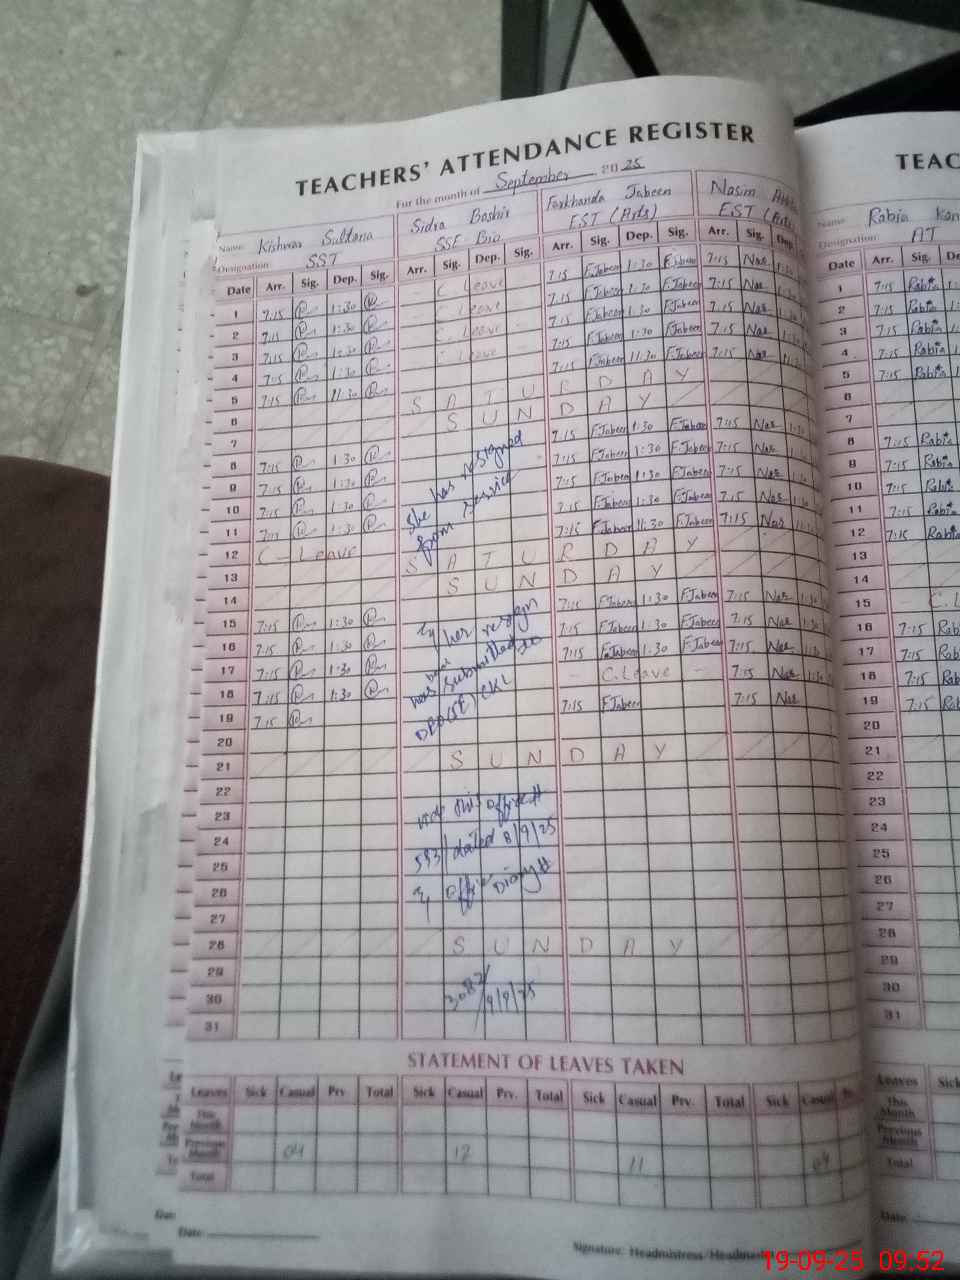 TEACHERS' ATTENDANCE REGISTER
For the month of September 2025
Name: Kishwar Sultana Sidra Bashir Farkhanda Jabeen Nasim
Designation SST SSE-Bio EST (Arts) EST (Arts
Date Arr. Sig. Dep. Sig. Arr. Sig. Dep. Sig. Arr. Sig. Dep. Sig. Arr. Sig. Dep.
1 7:15 1:30 C. Leave 7:15 F.Jabeen 1:30 F.Jabeen 7:15 Nas 1:30
2 7:15 1:30 C. Leave 7:15 F.Jabeen 1:30 F.Jabeen 7:15 Nas
3 7:15 1:30 C. Leave 7:15 F.Jabeen 1:30 F.Jabeen 7:15 Nas
4 7:15 1:30 C. Leave 7:15 F.Jabeen 1:30 F.Jabeen 7:15 Nas
5 7:15 11:30 7:15 F.Jabeen 11:30 F.Jabeen 7:15 Nas
6 S A T U R D A Y
7 S U N D A Y
8 7:15 1:30 7:15 F.Jabeen 1:30 F.Jabeen 7:15 Nas 1:30
9 7:15 1:30 7:15 F.Jabeen 1:30 F.Jabeen 7:15 Nas
10 7:15 1:30 7:15 F.Jabeen 1:30 F.Jabeen 7:15 Nas
11 7:15 1:30 7:15 F.Jabeen 1:30 F.Jabeen 7:15 Nas
12 C-Leave 7:15 F.Jabeen 11:30 F.Jabeen 7:15 Nas
She has resigned
from service
13 S A T U R D A Y
14 S U N D A Y
15 7:15 1:30 7:15 F.Jabeen 1:30 F.Jabeen 7:15 Nas 1:30
16 7:15 1:30 7:15 F.Jabeen 1:30 F.Jabeen 7:15 Nas
17 7:15 1:30 7:15 F.Jabeen 1:30 F.Jabeen 7:15 Nas 1:30
18 7:15 1:30 - C. Leave - 7:15 Nas 1:30
19 7:15 7:15 F.Jabeen 7:15 Nas
her resign
has submitted to
DEO(SE) CKL
20
21 S U N D A Y
22
23
24
25
26
27
vide this office #
593/ dated 8/9/25
office Diary #
28 S U N D A Y
29
30
31
3082/
9/9/25
STATEMENT OF LEAVES TAKEN
Leaves Sick Casual Prv Total Sick Casual Prv. Total Sick Casual Prv. Total Sick Casual
This Month
Previous Month 04 12 11 04
Total
Date:
Signature: Headmistress/Headmaster
TEAC
Name: Rabia
Designation AT
Date Arr. Sig.
1 7:15 Rabia
2 7:15 Rabia
3 7:15 Rabia
4 7:15 Rabia
5 7:15 Rabia
6
7
8 7:15 Rabia
9 7:15 Rabia
10 7:15 Rabia
11 7:15 Rabia
12 7:15 Rabia
13
14
15 - C.L
16 7:15 Rab
17 7:15 Rab
18 7:15 Rab
19 7:15 Rab
20
21
22
23
24
25
26
27
28
29
30
31
Leaves Sick
This Month
Previous Month
Total
Date:
19-09-25 09:52